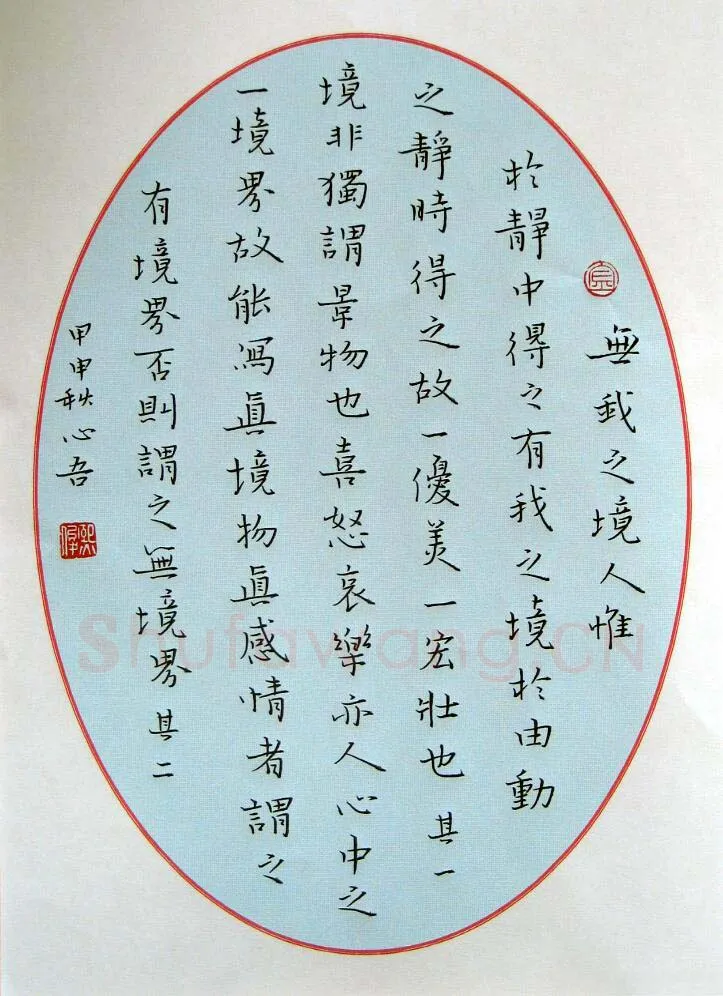 無我之境人惟
於靜中得之有我之境於由動
之靜時得之故一優美一宏壯也其一
境非獨謂景物也喜怒哀樂亦人心中之
一境界故能寫眞境物眞感情者謂之
有境界否則謂之無境界其二
甲申秋心吾
Shufawang.CN